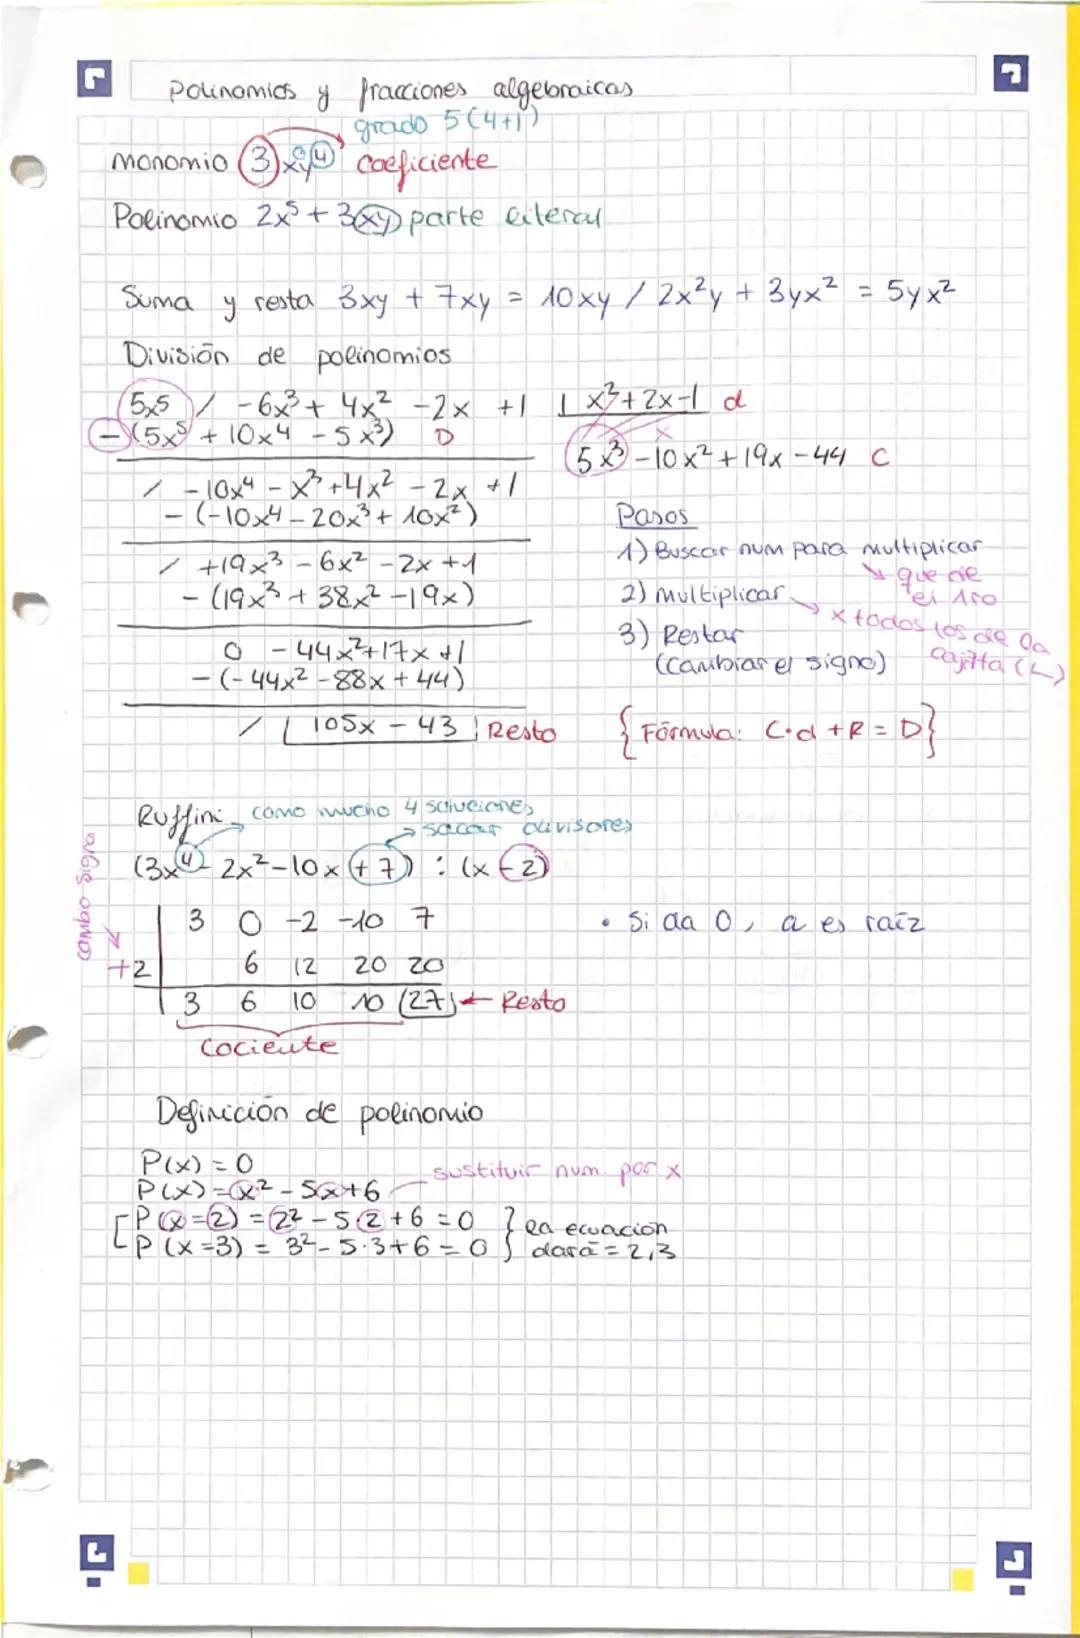 Polinomios y fracciones algebraicas
grado 5 (4+1)
monomio 3xy⁴ coeficiente
Polinomio 2x⁵ + 3xy parte literal
Suma y resta 3xy + 7xy = 10xy / 2x²y + 3yx² = 5yx²
División de polinomios
5x⁵ / -6x³ + 4x² -2x +1 | x²+2x-1 d
-(5x⁵ + 10x⁴ - 5x³) D
5x³ -10x² +19x -44 C
/ -10x⁴ - x³ +4x² -2x +1
- (-10x⁴ -20x³ + 10x²)
/ +19x³ -6x² -2x +1
- (19x³ + 38x² -19x)
0 -44x² +17x +1
- (-44x² -88x +44)
/ 105x - 43 Resto
Pasos
1) Buscar num para multiplicar
que de el 1ro
2) multiplicar
x todos los de la cajita (L)
3) Restar
(cambiar el signo)
{Fórmula: C·d + R = D}
Ruffini como mucho 4 soluciones
sacar divisores
(3x⁴ - 2x² -10x + 7) : (x - 2)
cambio signo
3 0 -2 -10 7
+2 6 12 20 20
3 6 10 10 (27) ← Resto
Cociente
• Si da 0, a es raíz
Definición de polinomio
P(x) = 0
sustituir num. por x
P(x) = x² - 5x + 6
P(x=2) = 2² - 5·2 + 6 = 0
P(x=3) = 3² - 5·3 + 6 = 0
la ecuación
dará = 2,3